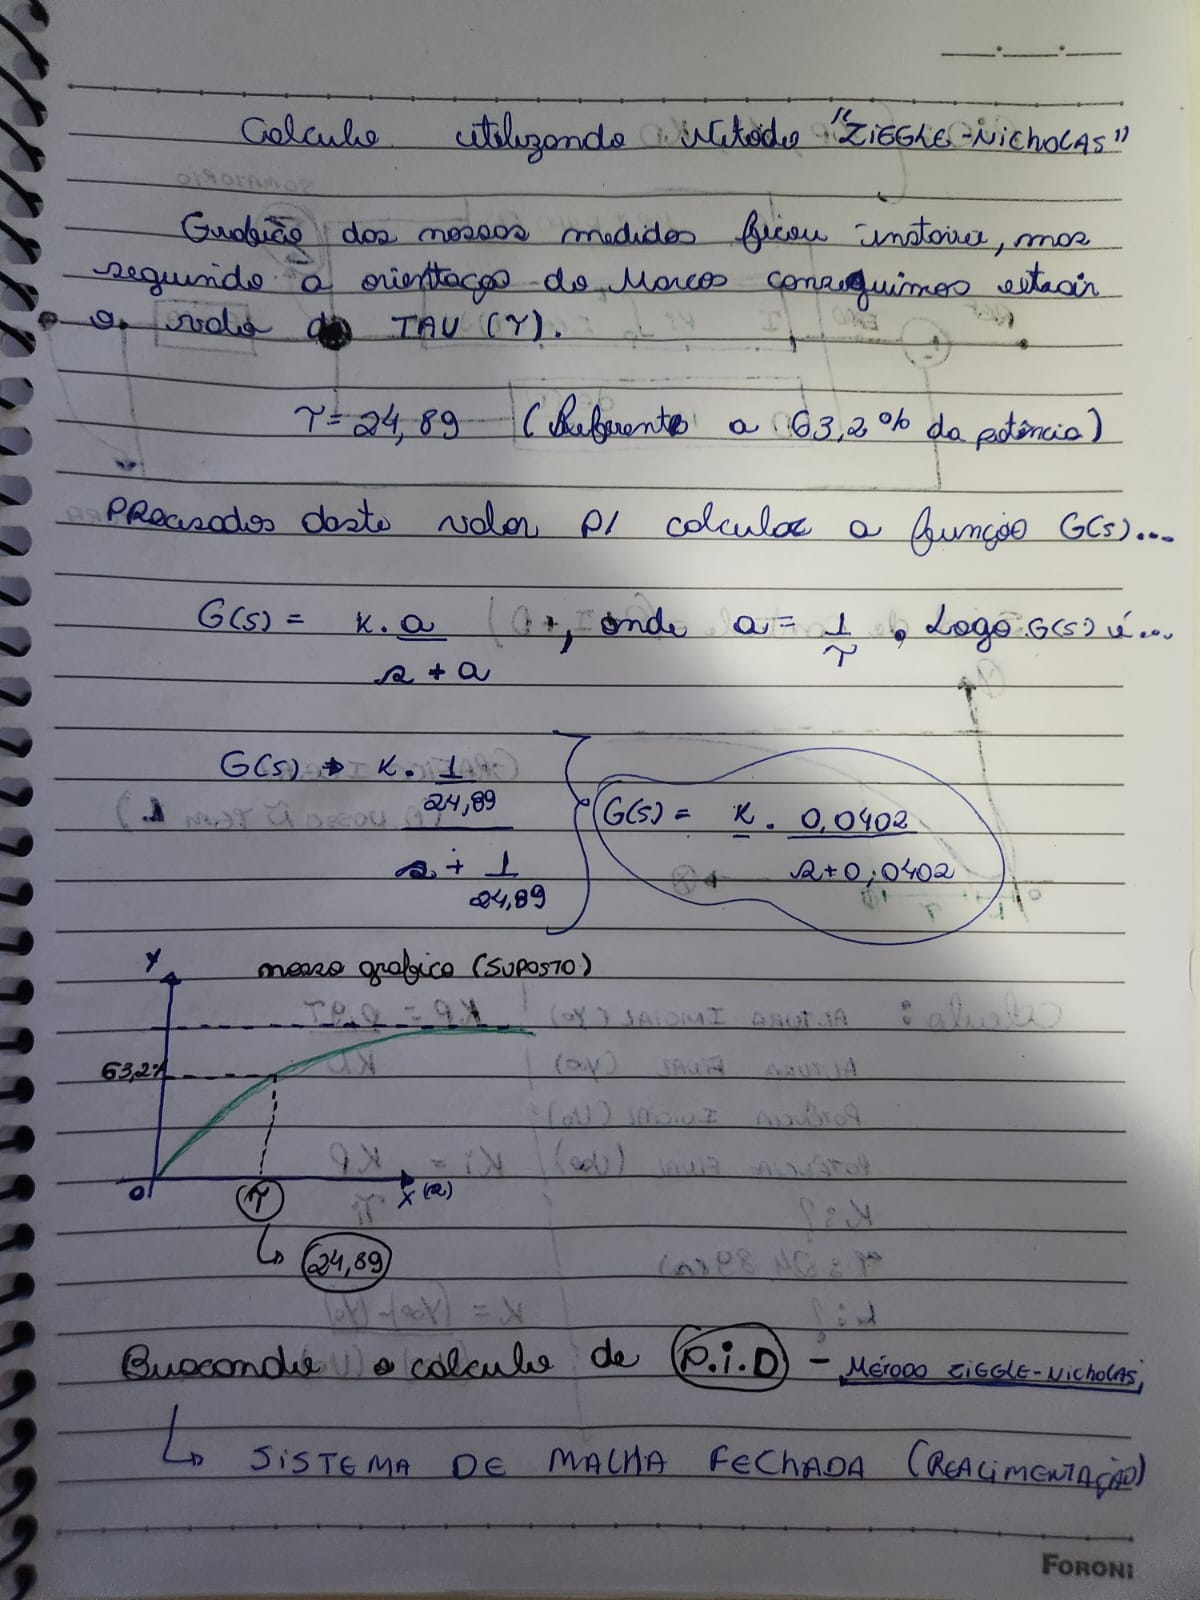 Calculo utilizando Metodo "ZIEGLE-NICHOLAS"
dos nossos medidos ficou instavel, mas
seguindo a orienttaçao do Marcos conseguimos extrair
o valor do TAU (τ).
τ = 24,89 (Referente a 63,2% da potência)
deste valor p/ calcular a função G(s)...
G(s) = K . a , onde a = 1 . Logo G(s) é...
s + a τ
G(s) → K . 1
24,89
s + 1
24,89
G(s) = K . 0,0402
s+0,0402
nosso grafico (SUPOSTO)
Y
63,2%
0 τ X (s)
24,89
Buscando o calculo de P.I.D - MÉTODO ZIEGLE-NICHOLAS,
↳ SISTEMA DE MALHA FECHADA (REALIMENTAÇÃO)
FORONI